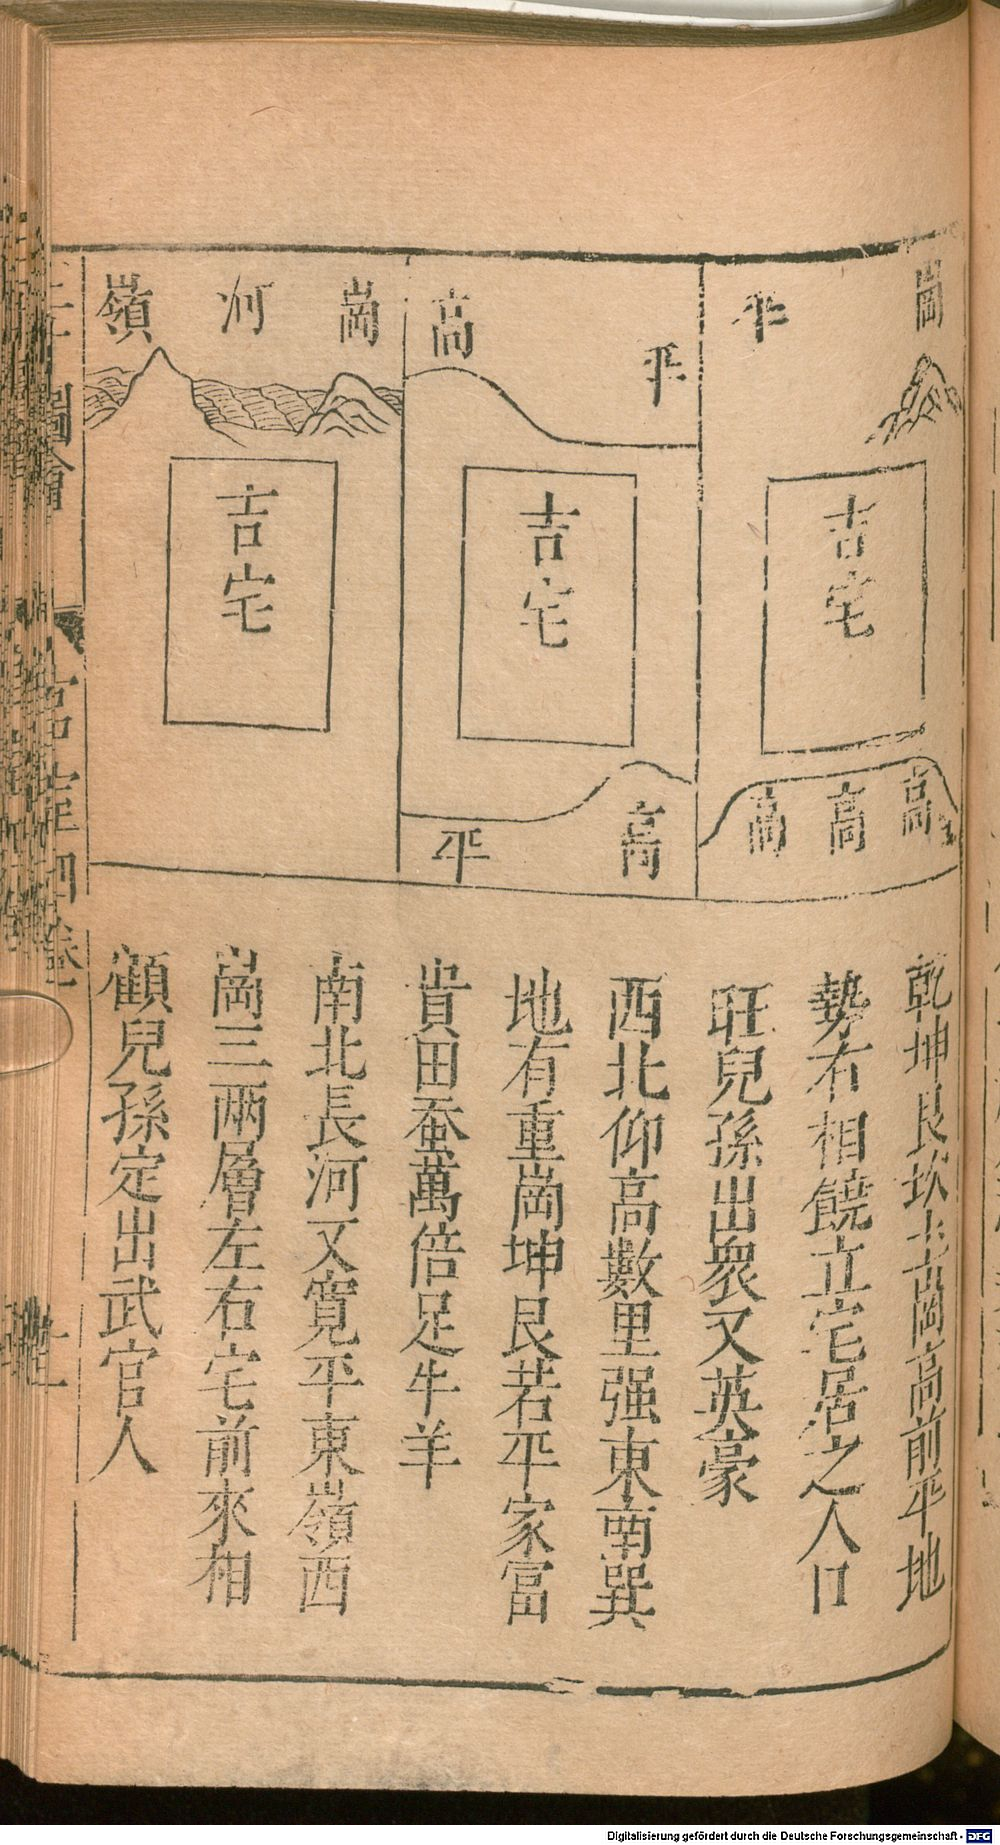 崗
平
吉宅
高
高
高
平
高
吉宅
高
平
崗
河
嶺
吉宅
乾坤艮坎土崗高前平地
勢右相饒立宅居之人口
旺兒孫出衆又英豪
西北仰高數里强東南巽
地有重崗坤艮若平家富
貴田蚕萬倍足牛羊
南北長河又寬平東嶺西
崗三兩層左右宅前來相
顧兒孫定出武官人
圖會
宮室四卷
Digitalisierung gefördert durch die Deutsche Forschungsgemeinschaft - DFG